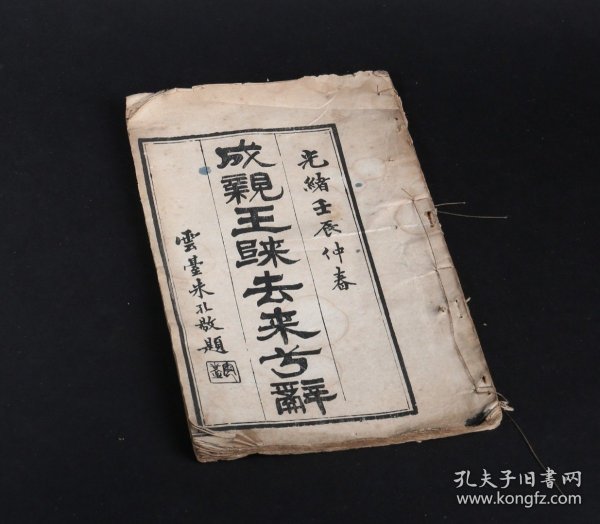 光緒壬辰仲春
成親王歸去来兮辭
雲臺朱孔敬題
孔夫子旧書网
www.kongfz.com